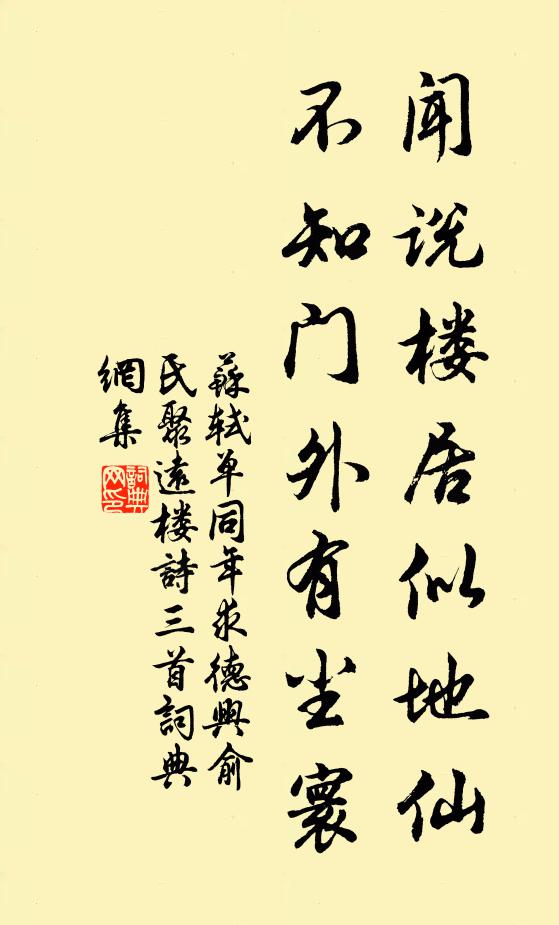 闻说楼居似地仙
不知门外有尘寰
蘇轼单同年求德興俞
氏聚遠楼詩三首詞典
網集
詞典网印